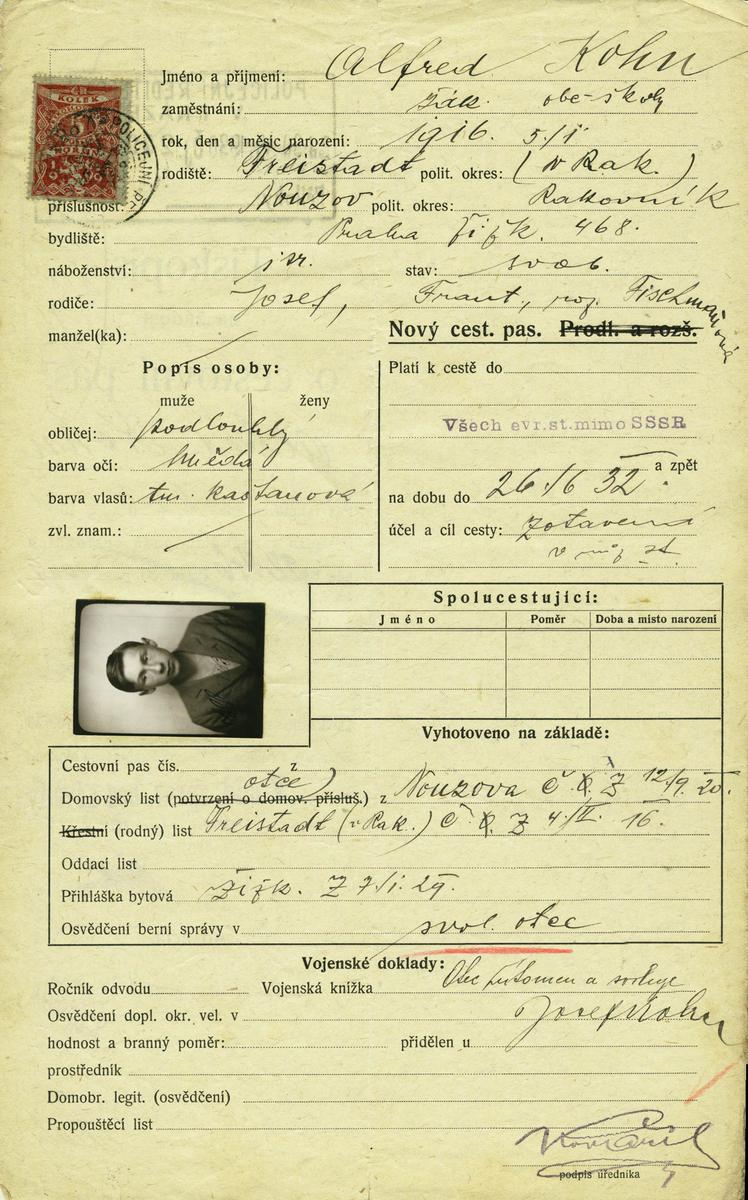 KOLEK
POLICEJNÍ
Jméno a příjmení: Alfred Kohn
zaměstnání: žák obč školy
rok, den a měsíc narození: 1916. 5/I
rodiště: Freistadt polit. okres: (v Rak.)
příslušnost: Nouzov polit. okres: Rakovník
bydliště: Praha Žižk. 468.
náboženství: izr. stav: svob.
rodiče: Josef, Frant, roz. Fischmanová
manžel(ka):
Nový cest. pas. Prodl. a rozš.
Popis osoby:
muže ženy
obličej: podlouhlý
barva očí: hnědá
barva vlasů: tm. kaštanová
zvl. znam.:
Platí k cestě do
Všech evr.st.mimo SSSR
a zpět
na dobu do 26/6 32
účel a cíl cesty: zotavení
Spolucestující:
Jméno Poměr Doba a místo narození
Vyhotoveno na základě:
Cestovní pas čís.
otče
Domovský list (potvrzení o domov. přísluš.) z Nouzova č. Z 12/9. 20.
Křestní (rodný) list Freistadt (v Rak.) č. Z 4/II. 16.
Oddací list
Přihláška bytová Žižk. Z 7/I. 29.
Osvědčení berní správy v svol. otec
Vojenské doklady:
Ročník odvodu Vojenská knížka Otec přítomen a svoluje
Osvědčení dopl. okr. vel. v Josef Kohn
hodnost a branný poměr: přidělen u
prostředník
Domobr. legit. (osvědčení)
Propouštěcí list
podpis úředníka